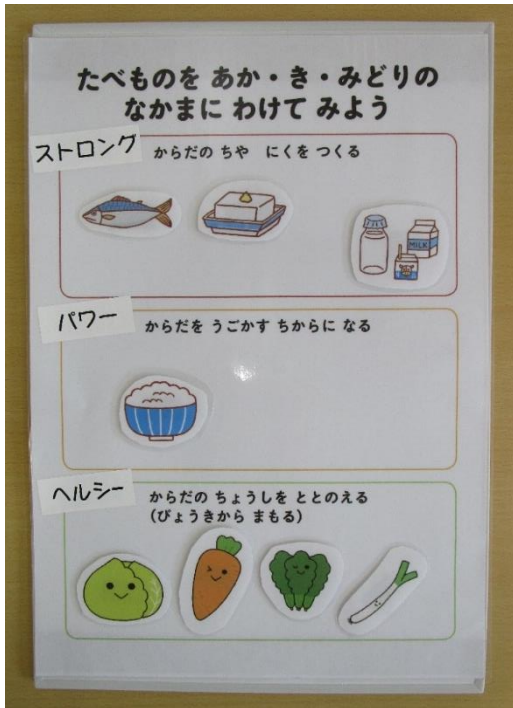 たべものを あか・き・みどりの
なかまに わけて みよう
ストロング
からだの ちや　にくを つくる
MILK
パワー
からだを うごかす ちからに なる
ヘルシー
からだの ちょうしを ととのえる
(びょうきから まもる)